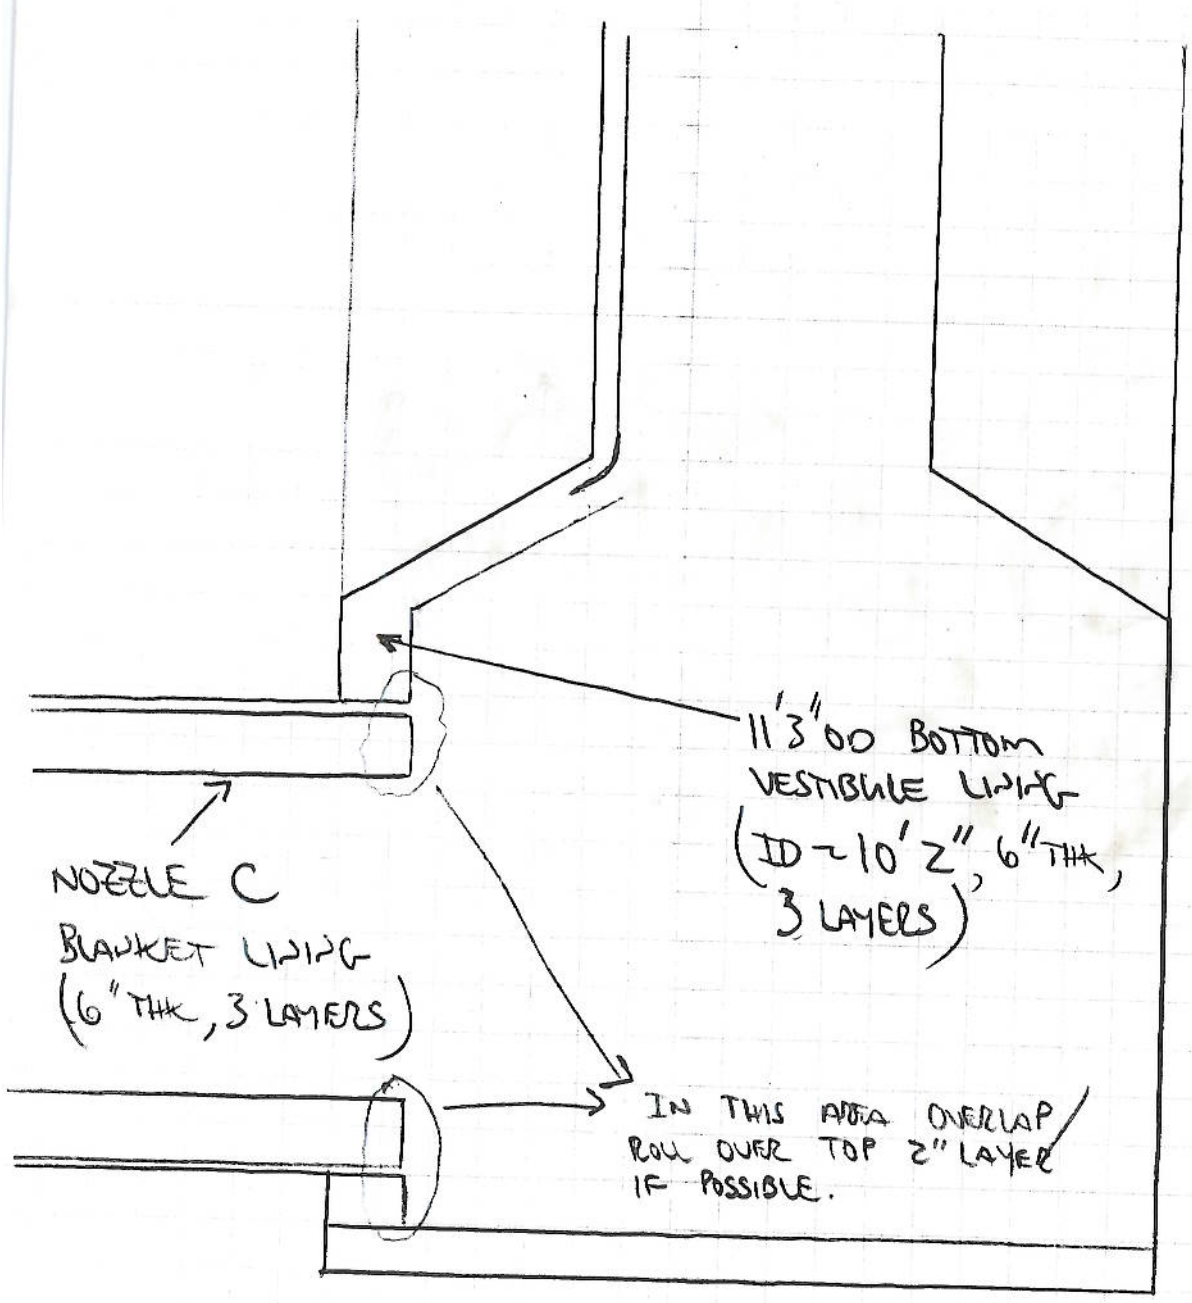 11'3"OD BOTTOM
VESTIBULE LINING
(ID ~ 10'2", 6" THK,
3 LAYERS)
NOZZLE C
BLANKET LINING
(6" THK, 3 LAYERS)
IN THIS AREA OVERLAP/
ROLL OVER TOP 2" LAYER
IF POSSIBLE.